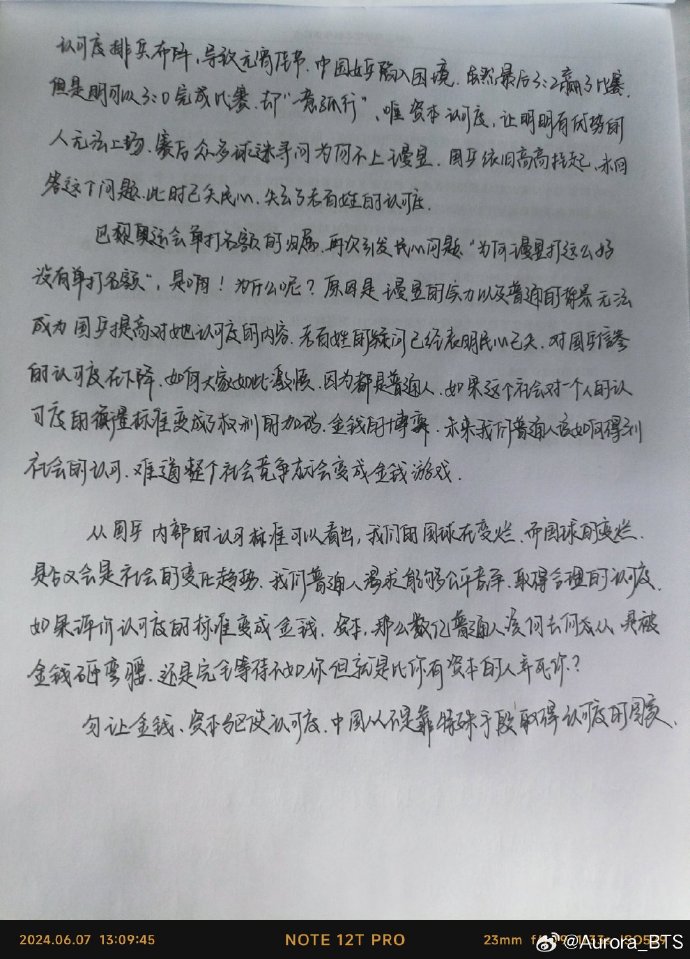 认可度排兵布阵,导致元宵佳节,中国女乒陷入困境,虽然最后3:2赢了比赛,
但是明可以3:0完成比赛,却“一意孤行”,唯资本认可度,让明明有优势的
人无法上场,赛后众多球迷寻问为何不上曼昱,国乒依旧高高挂起,未回
答这个问题,此时已失民心,失去了老百姓的认可度.
巴黎奥运会单打名额的归属,再次引发民心问题“为何曼昱打这么好
没有单打名额”,是啊!为什么呢?原因是曼昱的实力以及普通的背景无法
成为国乒提高对她认可度的内容,老百姓的疑问已经表明民心已失,对国乒
的认可度在下降,如何大家如此激愤,因为都是普通人,如果这个社会对一个人的认
可度的衡量标准变成了权利的加码,金钱的博弈,未来我们普通人该如何得到
社会的认可,难道整个社会竞争都会变成金钱游戏.
从国乒内部的认可标准可以看出,我们的国球在变烂,而国球的变烂,
是否又会是社会的变化趋势,我们普通人渴求能够公平竞争,取得合理的认可度,
如果评价认可度的标准变成金钱、资本,那么数亿普通人该何去何从,是被
金钱砸弯腰,还是完全等待不如你但就是比你有资本的人弄死你?
勿让金钱、资本驱使认可度,中国从不是靠特殊手段取得认可度的国家.
2024.06.07 13:09:45 NOTE 12T PRO 23mm
@Aurora_BTS